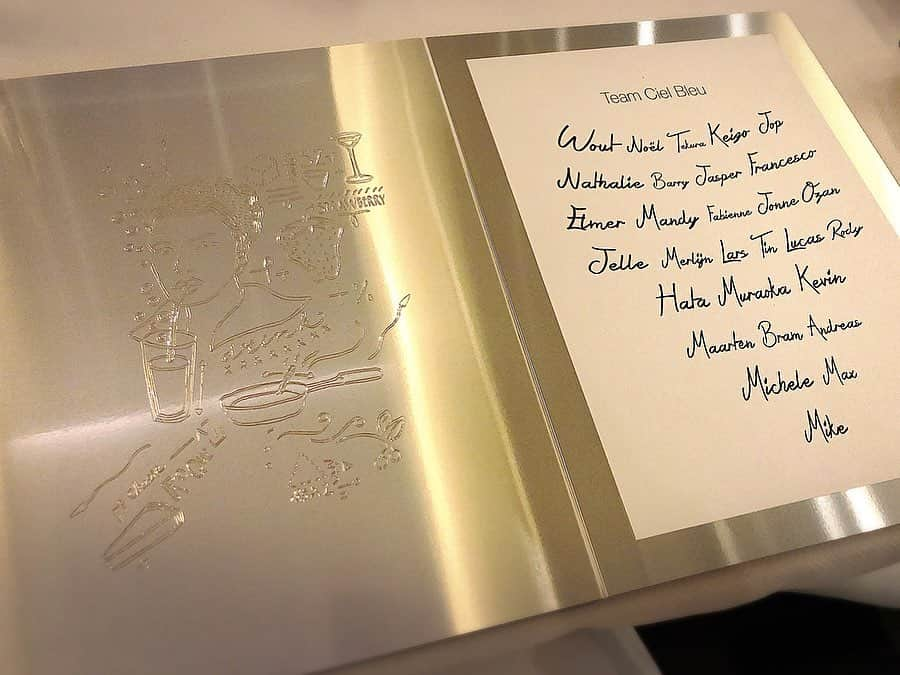 STRAWBERRY
drink
Team Ciel Bleu
Wout Noël Takura Keigo Jop
Nathalie Barry Jasper Francesco
Elmer Mandy Fabienne Jonne Ozan
Jelle Merlijn Lars Tin Lucas Rody
Hata Muraoka Kevin
Maarten Bram Andreas
Michele Max
Mike